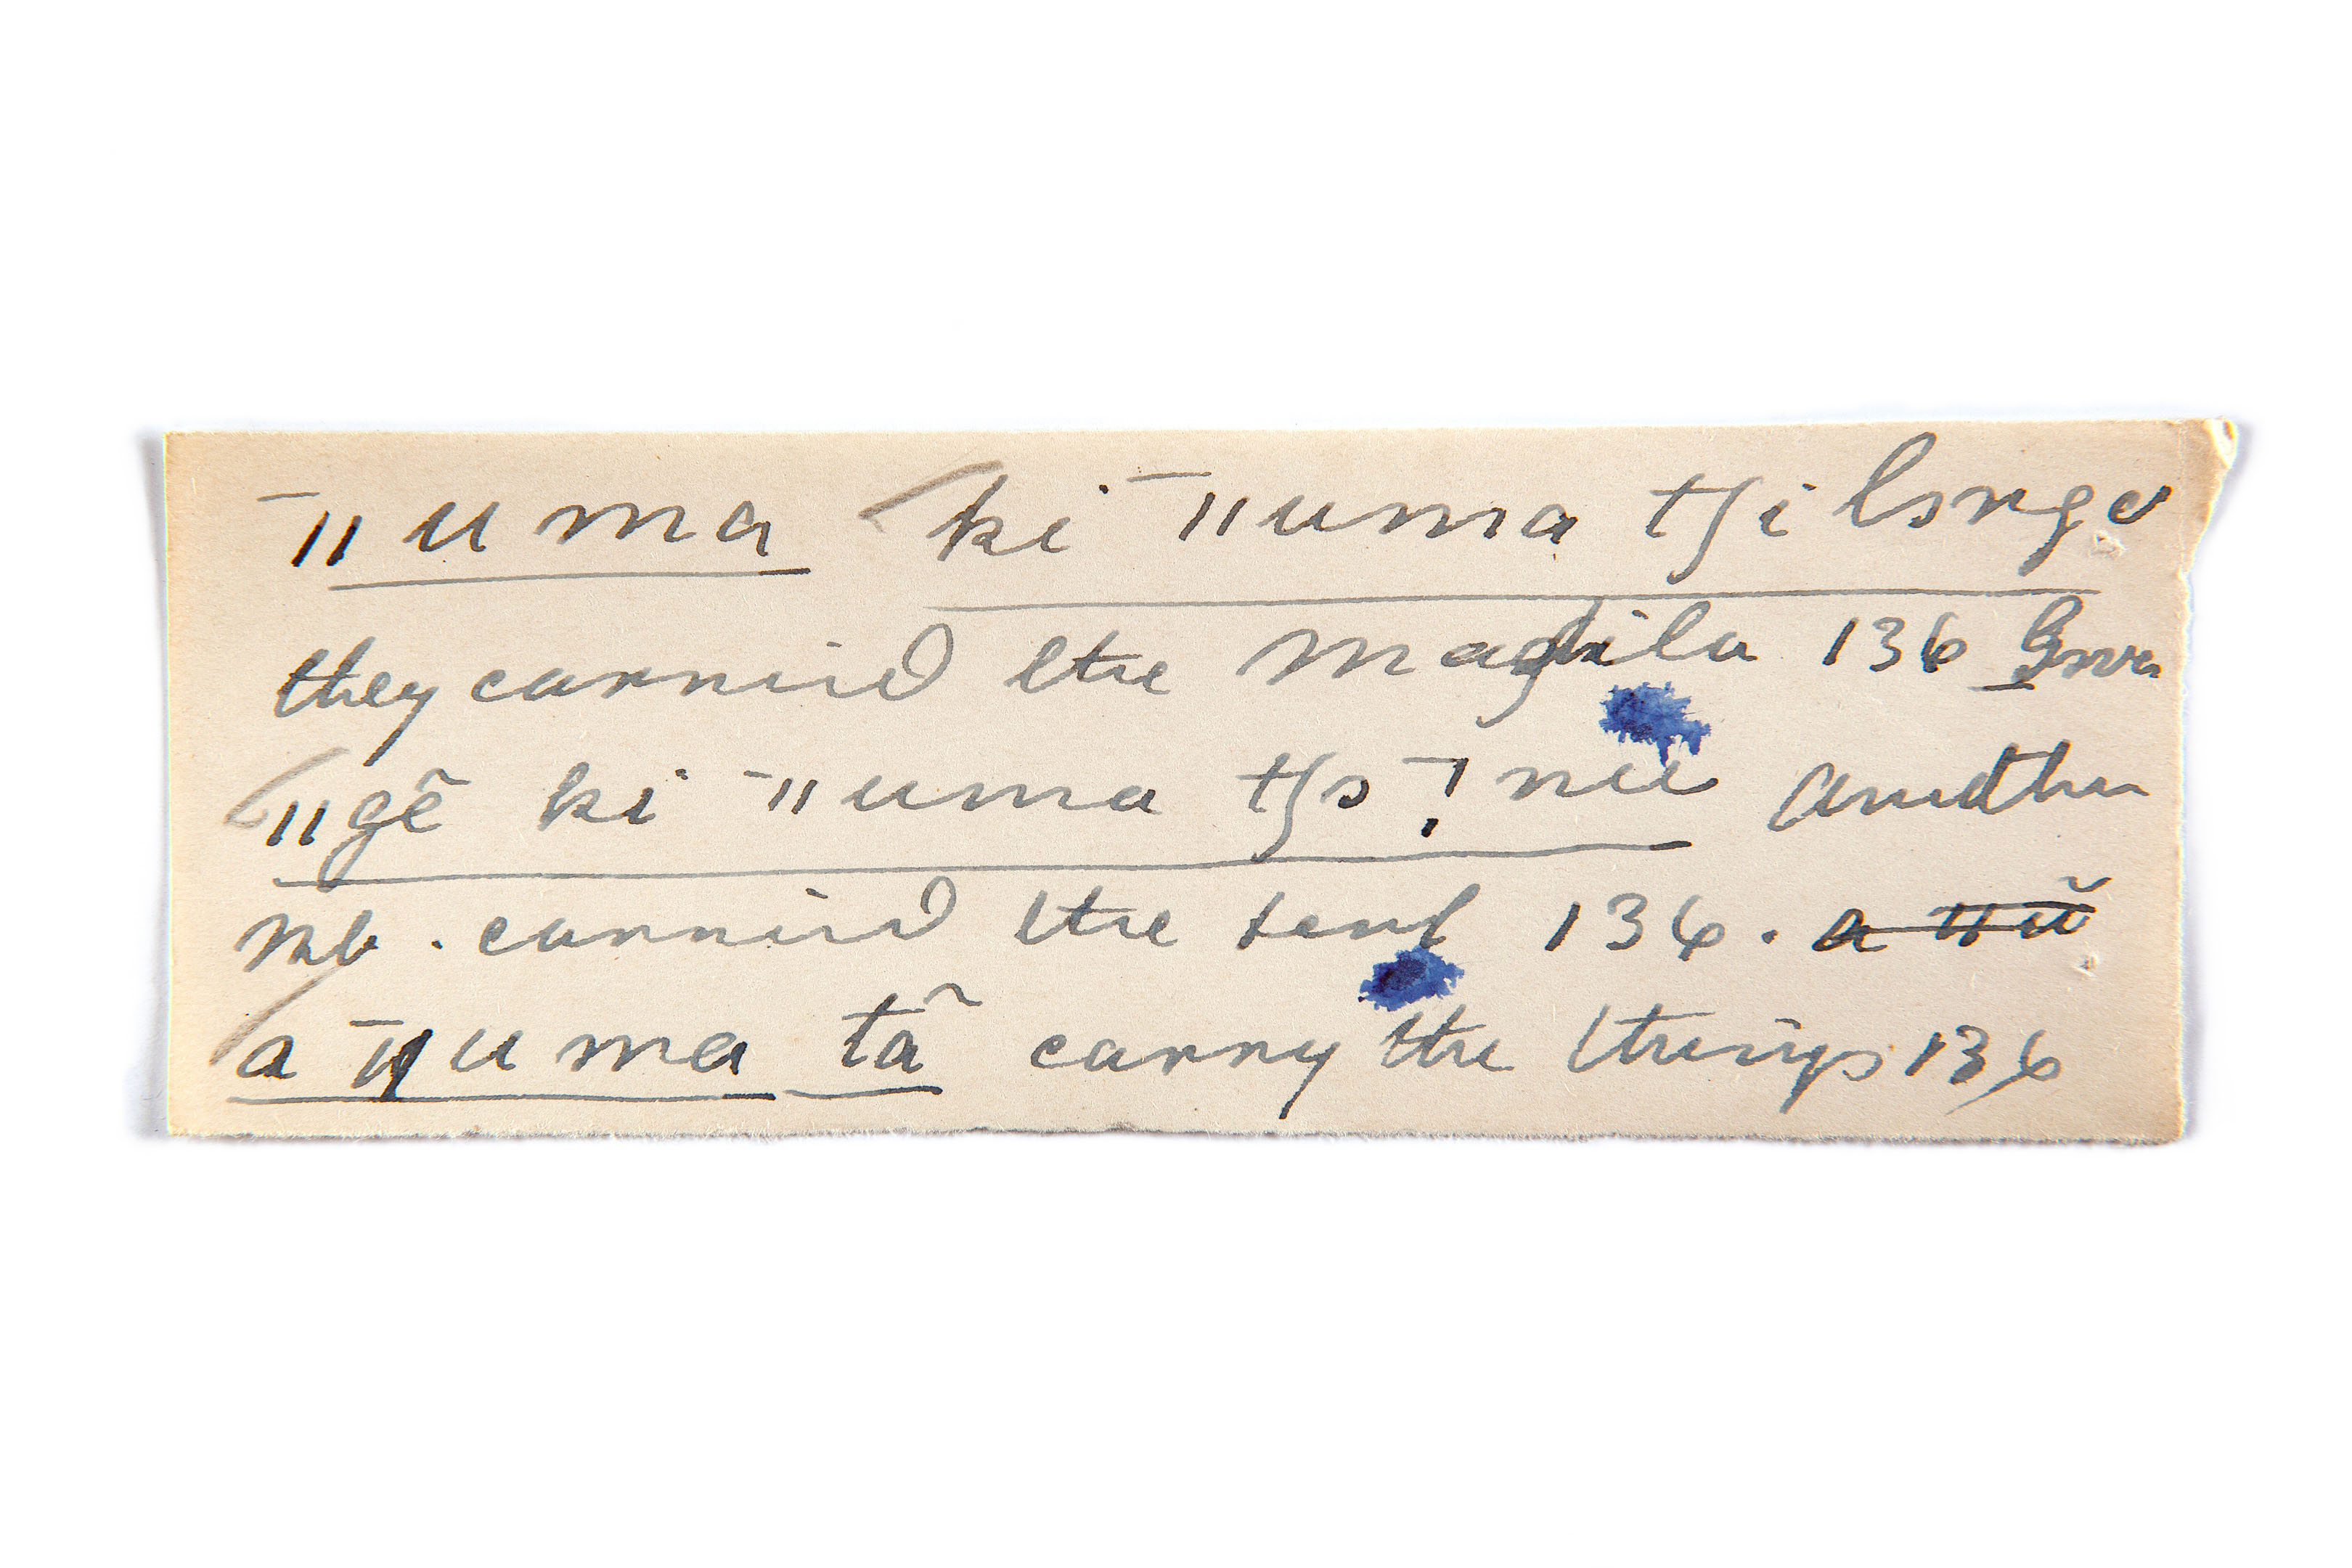 ‾ǁuma ki ‾ǁuma tʃi longo
they carried the Magila 136
ǁgẽ ki ‾ǁuma tʃo ‾ǃ nu Another
carried the tent 136. a ǁũ
a ‾ǁuma tã carry the things 136